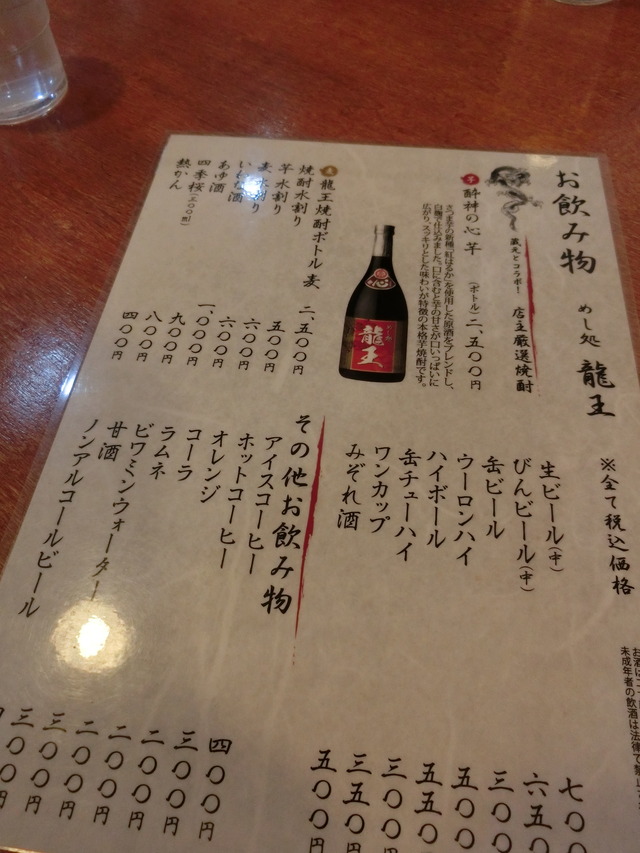 お飲み物
めし処 龍王
※全て税込価格
蔵元とコラボ！
店主厳選焼酎
芋 酔神の心 芋 （ボトル）二、五〇〇円
さつま芋の新種「紅はるか」を使用した原酒をブレンドし、
白麹で仕込みました。口に含むと芋の甘さが口いっぱいに
広がり、スッキリとした味わいが特徴の本格芋焼酎です。
心
龍王
麦 龍王焼酎ボトル 麦 二、五〇〇円
焼酎水割り 五〇〇円
芋 水割り 六〇〇円
麦 水割り 六〇〇円
酒 九〇〇円
あゆ酒 一、〇〇〇円
四季桜(三〇〇㎖) 八〇〇円
熱かん 四〇〇円
生ビール(中) 七〇
びんビール(中) 六五〇
缶ビール 三〇
ウーロンハイ 五〇〇
ハイボール 五五〇
缶チューハイ 三〇〇円
ワンカップ 三五〇円
みぞれ酒 五〇〇円
その他お飲み物
アイスコーヒー 四〇〇円
ホットコーヒー 三〇〇円
オレンジ 二〇〇円
コーラ 二〇〇円
ラムネ 二〇〇円
ビワミンウォーター 三〇〇円
甘酒 三〇〇円
ノンアルコールビール 円
お酒は
未成年者の飲酒は法律で禁